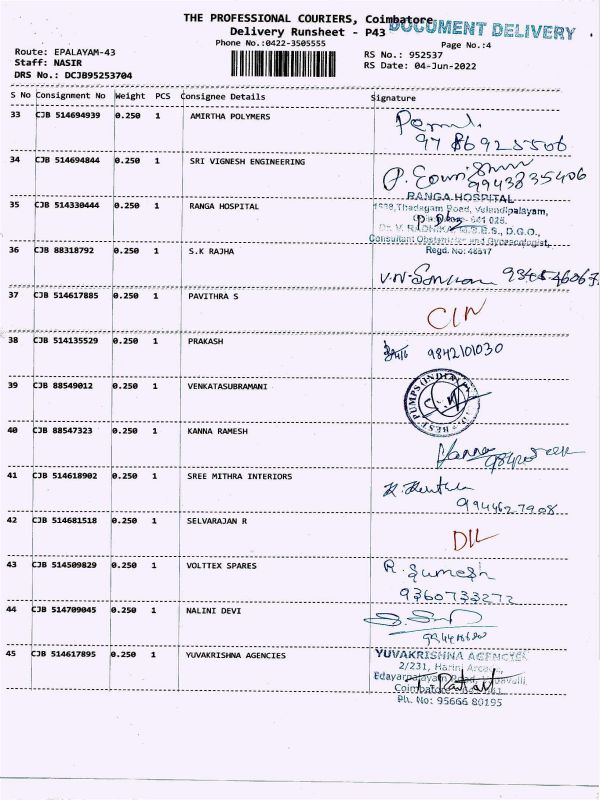 THE PROFESSIONAL COURIERS, Coimbatore
DOCUMENT DELIVERY
Delivery Runsheet - P43
Phone No.:0422-3505555
Page No.:4
Route: EPALAYAM-43
RS No.: 952537
Staff: NASIR
RS Date: 04-Jun-2022
DRS No.: DCJB95253704
S No Consignment No Weight PCS Consignee Details Signature
33 CJB 514694939 0.250 1 AMIRTHA POLYMERS
34 CJB 514694844 0.250 1 SRI VIGNESH ENGINEERING
9943835406
35 CJB 514330444 0.250 1 RANGA HOSPITAL
RANGA HOSPITAL
Thadagam Road, Velandipalayam,
641 025.
Dr. V. RADHIKA, M.B.B.S., D.G.O.,
Consultant Obstetrician and Gynaecologist,
Regd. No: 48517
36 CJB 88318792 0.250 1 S.K RAJHA
37 CJB 514617885 0.250 1 PAVITHRA S
38 CJB 514135529 0.250 1 PRAKASH
9842101030
39 CJB 88549012 0.250 1 VENKATASUBRAMANI
40 CJB 88547323 0.250 1 KANNA RAMESH
Kanna
41 CJB 514618902 0.250 1 SREE MITHRA INTERIORS
9944627908
42 CJB 514681518 0.250 1 SELVARAJAN R
DIL
43 CJB 514509829 0.250 1 VOLTTEX SPARES
R. Sumesh
9360733272
44 CJB 514709045 0.250 1 NALINI DEVI
45 CJB 514617895 0.250 1 YUVAKRISHNA AGENCIES
YUVAKRISHNA AGENCIES
2/231, Harini Arcade,
Edayarpalayam Road,
Coimbatore
Ph. No: 95666 80195